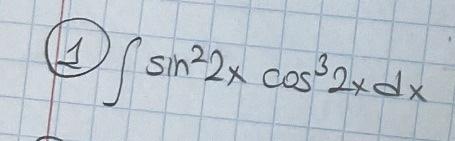 ① ∫ sin²2x cos³2x dx